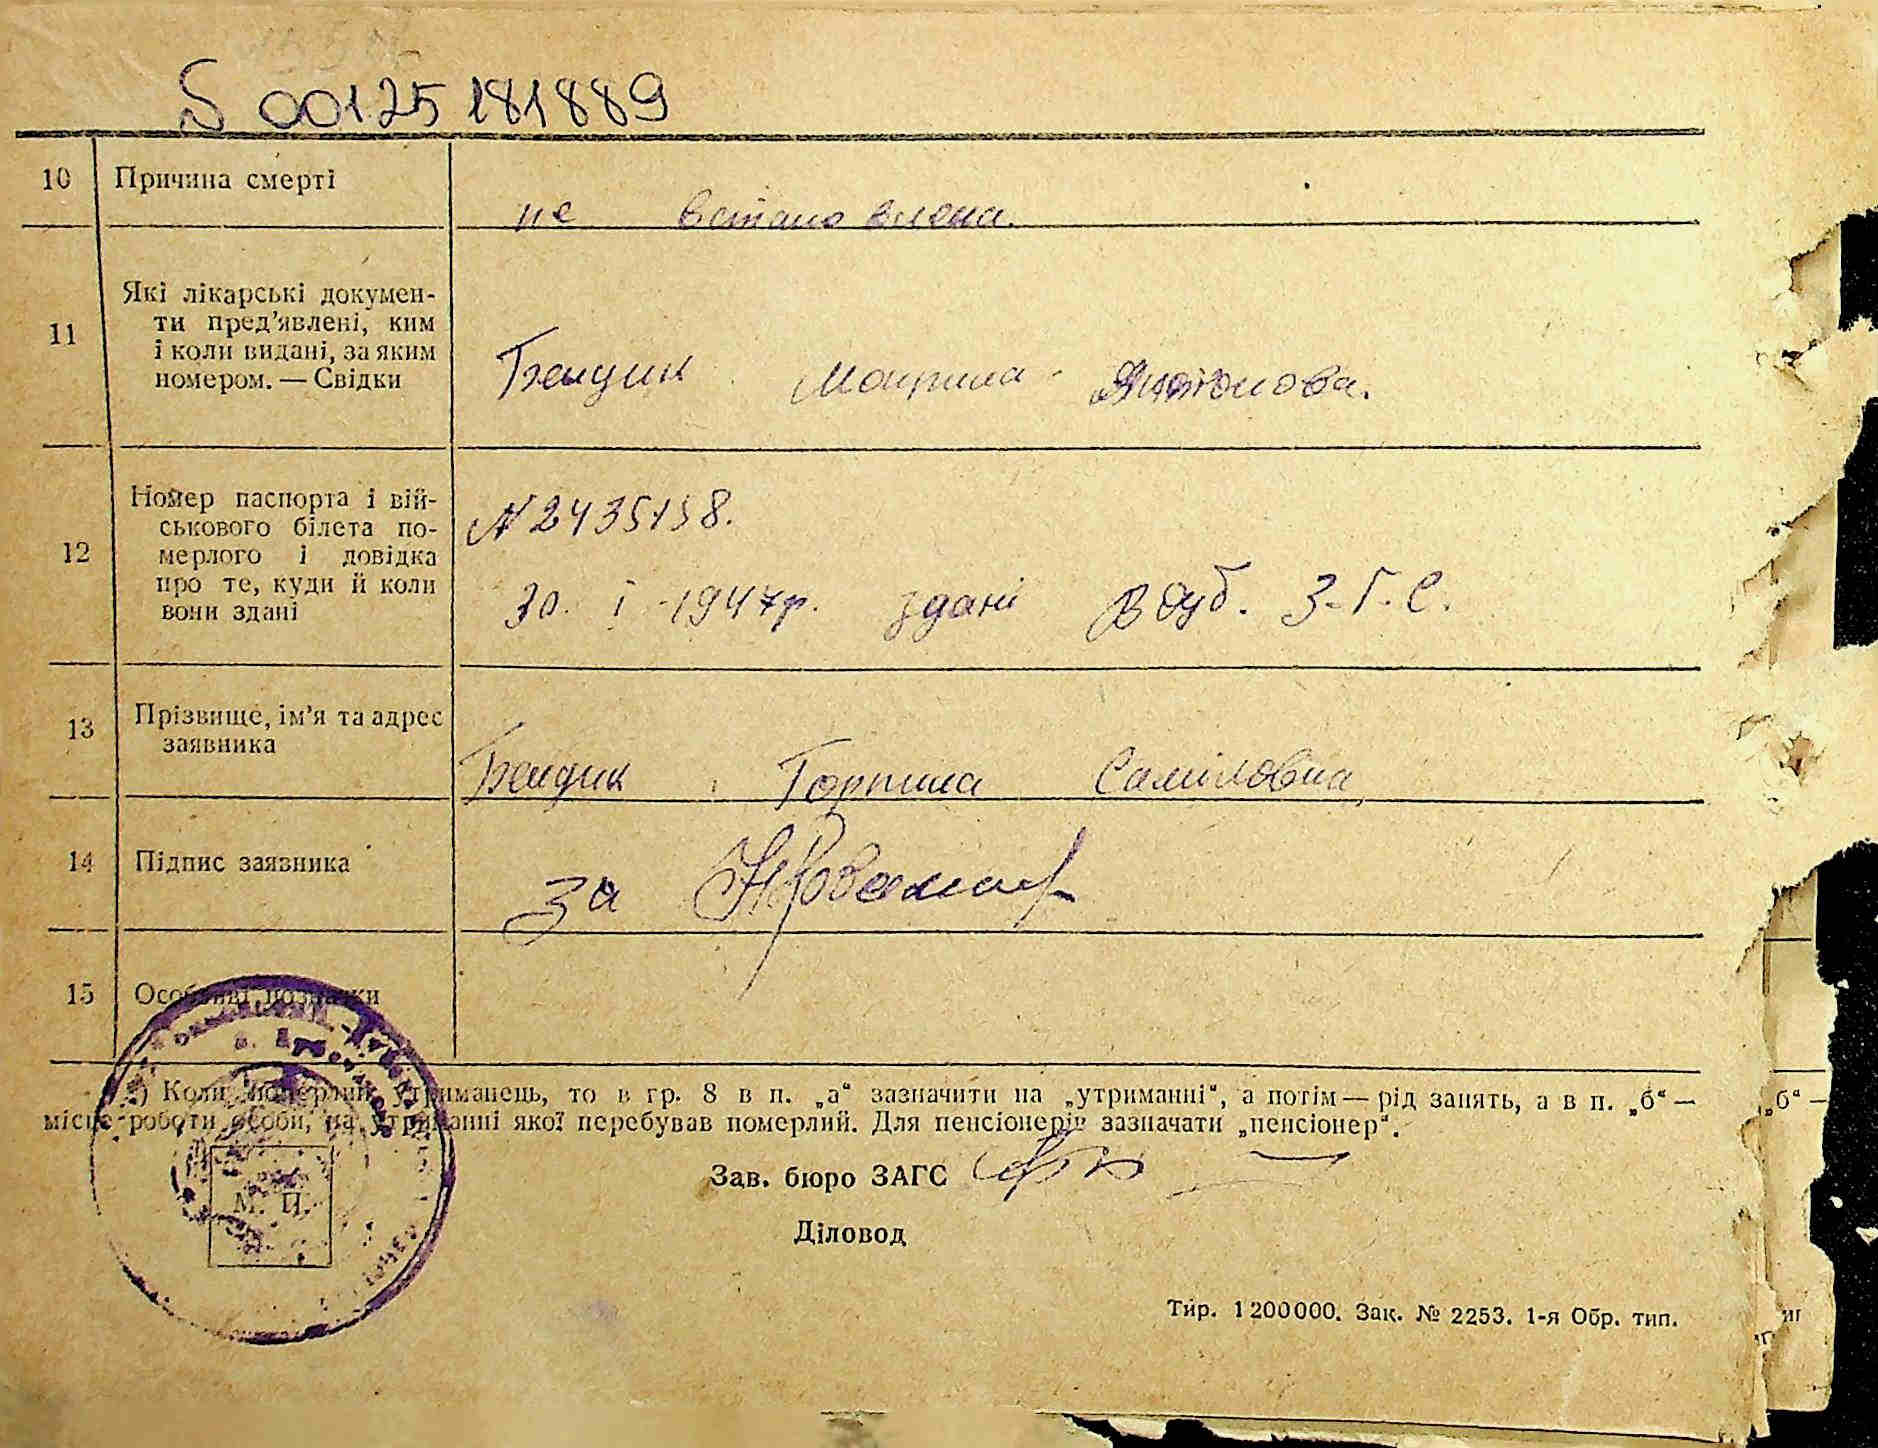 S 00125 181889
10 Причина смерті не встановлена.
11 Які лікарські докумен-
ти пред'явлені, ким
і коли видані, за яким
номером. — Свідки
Бендик Мотрина Антонова.
12 Номер паспорта і вій-
ськового білета по-
мерлого і довідка
про те, куди й коли
вони здані
N 2435158.
30. і 1947р. здані в дуб. З.Г.С.
13 Прізвище, ім'я та адрес
заявника
Бендик Горпина Самiловна
14 Підпис заявника за
15 Особливі позначки
*) Коли померлий утриманець, то в гр. 8 в п. „а“ зазначити на „утриманні“, а потім — рід занять, а в п. „б“ —
місце роботи особи, на утриманні якої перебував померлий. Для пенсіонерів зазначати „пенсіонер“.
М. П.
Зав. бюро ЗАГС
Діловод
Тир. 1200000. Зак. № 2253. 1-я Обр. тип.
„б“ —